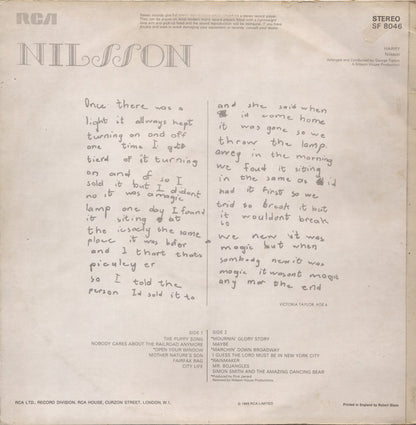 RCA
STEREO
SF 8046
NILSSON
HARRY
Nilsson
Arranged and Conducted by George Tipton
A Nilsson House Production
Once there was a
light it allways kept
turning on and off
one time I got
tierd of it turning
on and of so I
sold it but I didont
no it was a magic
lamp one day I found
it siting at
the usauly same
place it was befor
and I thort thats
piculeyer
so I told the
person I'd sold it to
and she said when
id come home
it was gone so we
throw the lamp
awey in the morning
we foud it siting
in the same as id
had it first so we
trid so break it but
it wouldnt break
so
we new it was
magic but when
sombody new it was
magic it wasont magic
any mor the end
VICTORIA TAYLOR, AGE 6
SIDE 1
THE PUPPY SONG
NOBODY CARES ABOUT THE RAILROAD ANYMORE
*OPEN YOUR WINDOW
MOTHER NATURE'S SON
FAIRFAX RAG
CITY LIFE
SIDE 2
*MOURNIN' GLORY STORY
MAYBE
*MARCHIN' DOWN BROADWAY
I GUESS THE LORD MUST BE IN NEW YORK CITY
*RAINMAKER
MR. BOJANGLES
SIMON SMITH AND THE AMAZING DANCING BEAR
*Produced by Rick Jarrard
RCA LTD., RECORD DIVISION, RCA HOUSE, CURZON STREET, LONDON, W.1.
© 1969 RCA LIMITED
Printed in England by Robert Stace